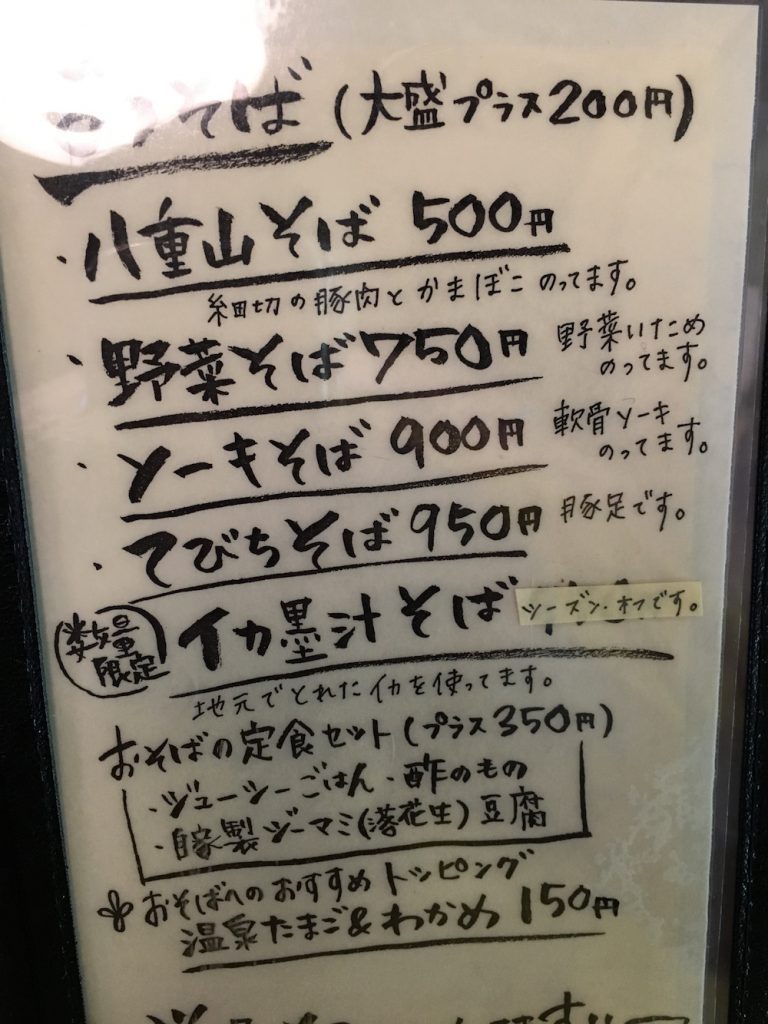 そば (大盛プラス200円)
・八重山そば 500円
細切の豚肉とかまぼこのってます。
・野菜そば 750円 野菜いためのってます。
・ソーキそば 900円 軟骨ソーキのってます。
・てびちそば 950円 豚足です。
数量限定 イカ墨汁そば シーズン・オフです。
地元でとれたイカを使ってます。
おそばの定食セット (プラス350円)
・ジューシーごはん ・酢のもの
・自家製ジーマミ(落花生)豆腐
おそばへのおすすめトッピング
温泉たまご&わかめ 150円